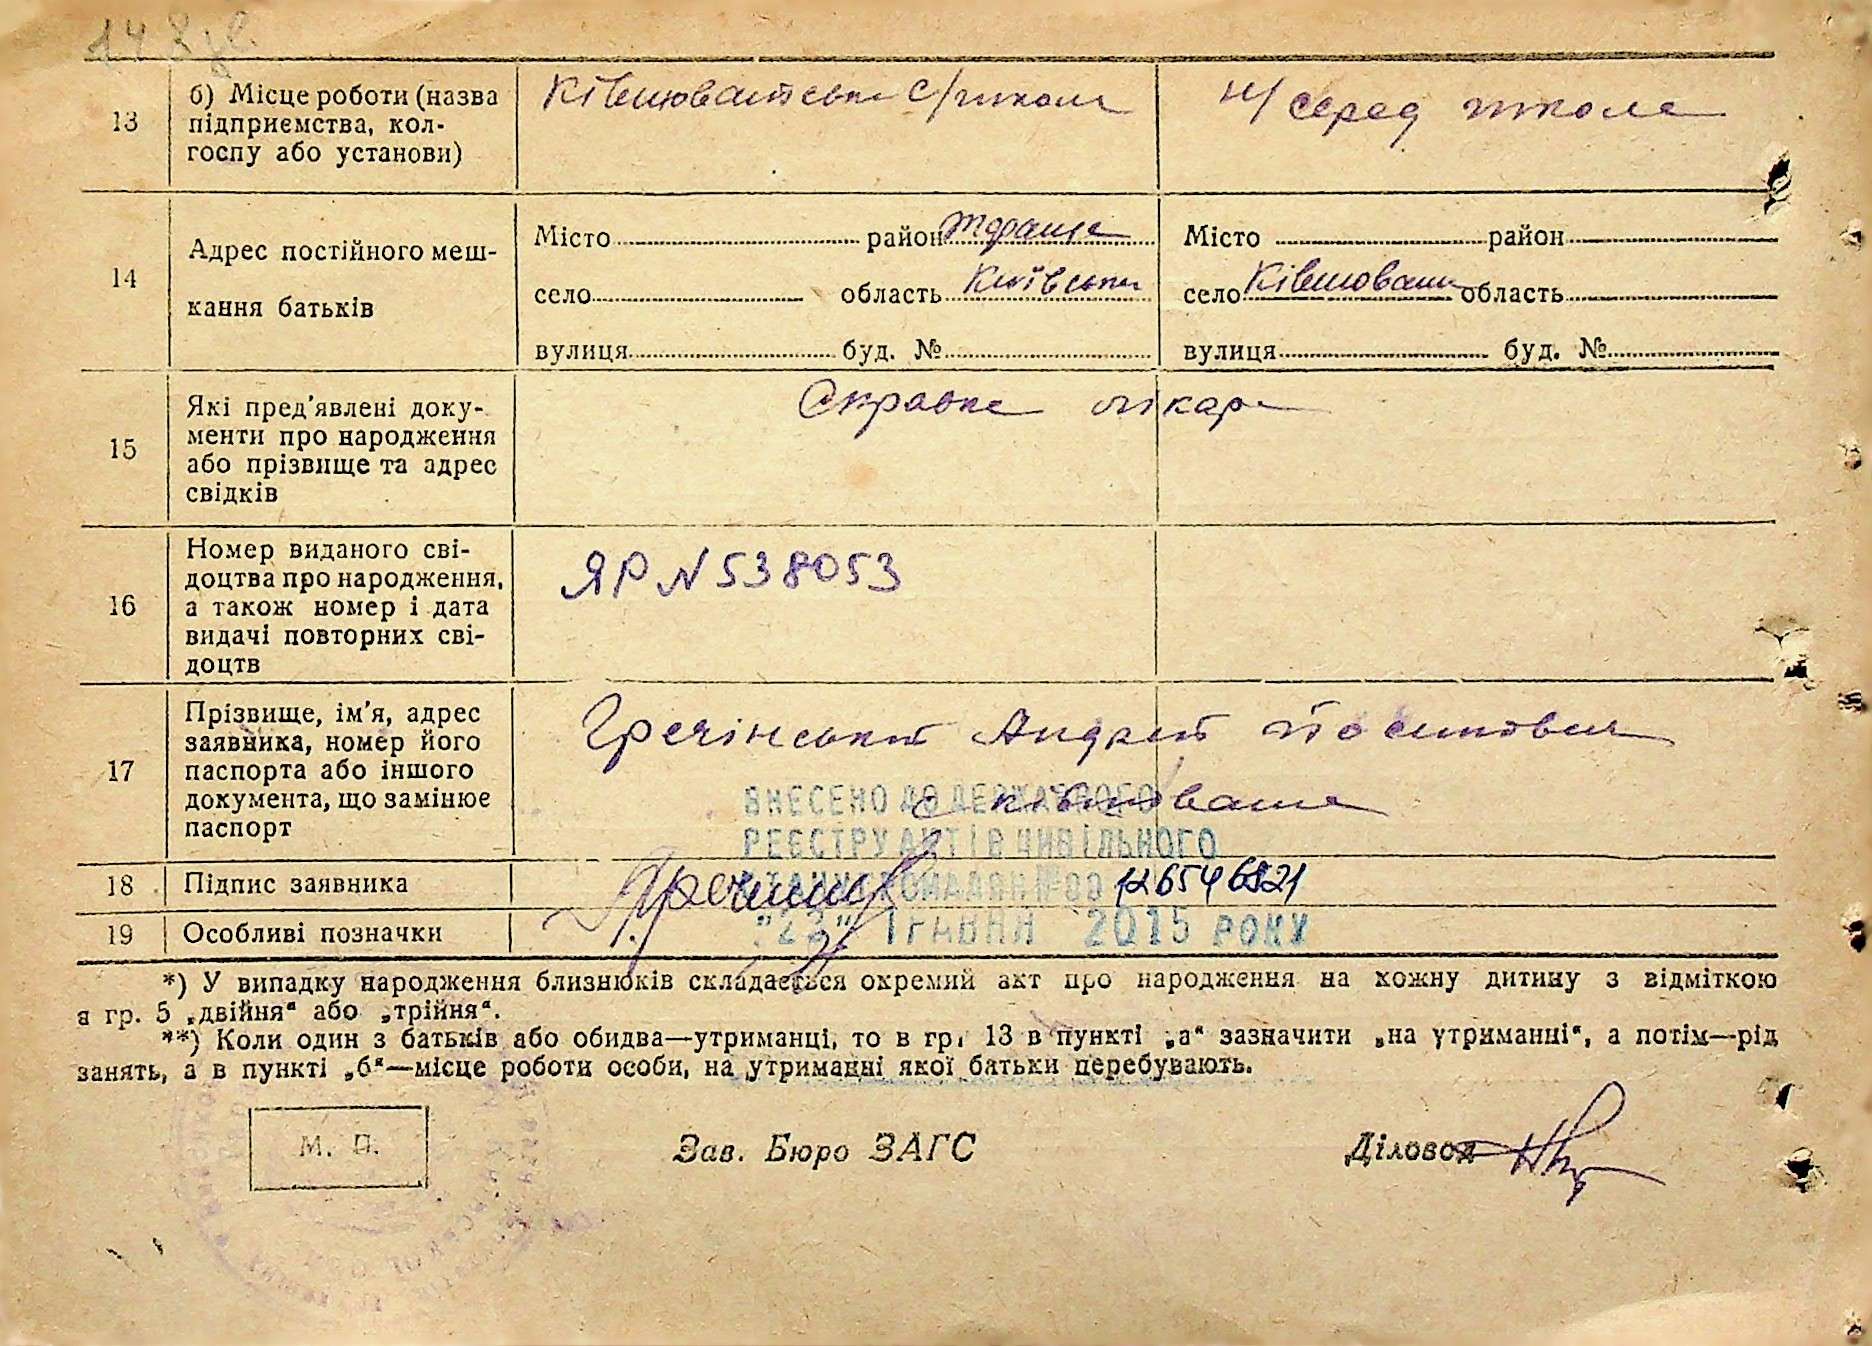 13
б) Місце роботи (назва
підприємства, кол-
госпу або установи)
Ківшоватська с/школа
н/серед школа
14
Адрес постійного меш-
кання батьків
Місто район
село область Київська
вулиця буд. №
Місто район
село Ківшовата область
вулиця буд. №
15
Які пред'явлені доку-
менти про народження
або прізвище та адрес
свідків
Справка лікаря
16
Номер виданого сві-
доцтва про народження,
а також номер і дата
видачі повторних сві-
доцтв
ЯР N 538053
17
Прізвище, ім'я, адрес
заявника, номер його
паспорта або іншого
документа, що замінює
паспорт
Гречінський Андрей Йосипович
с Ківшовата
ВНЕСЕНО ДО ДЕРЖАВНОГО
РЕЄСТРУ АКТІВ ЦИВІЛЬНОГО
СТАНУ ГРОМАДЯН № 00126546821
"23" ТРАВНЯ 2015 РОКУ
18
Підпис заявника
19
Особливі позначки
*) У випадку народження близнюків складається окремий акт про народження на кожну дитину з відміткою
в гр. 5 „двійня“ або „трійня“.
**) Коли один з батьків або обидва—утриманці, то в гр. 13 в пункті „а“ зазначити „на утриманні“, а потім—рід
занять, а в пункті „б“—місце роботи особи, на утриманні якої батьки перебувають.
М. П.
Зав. Бюро ЗАГС
Діловод